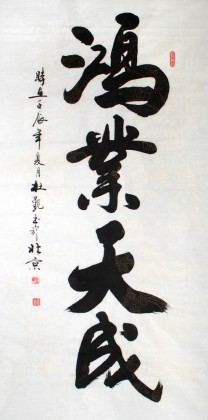 鸿業天成
時在壬辰年夏月杜凱書於北京